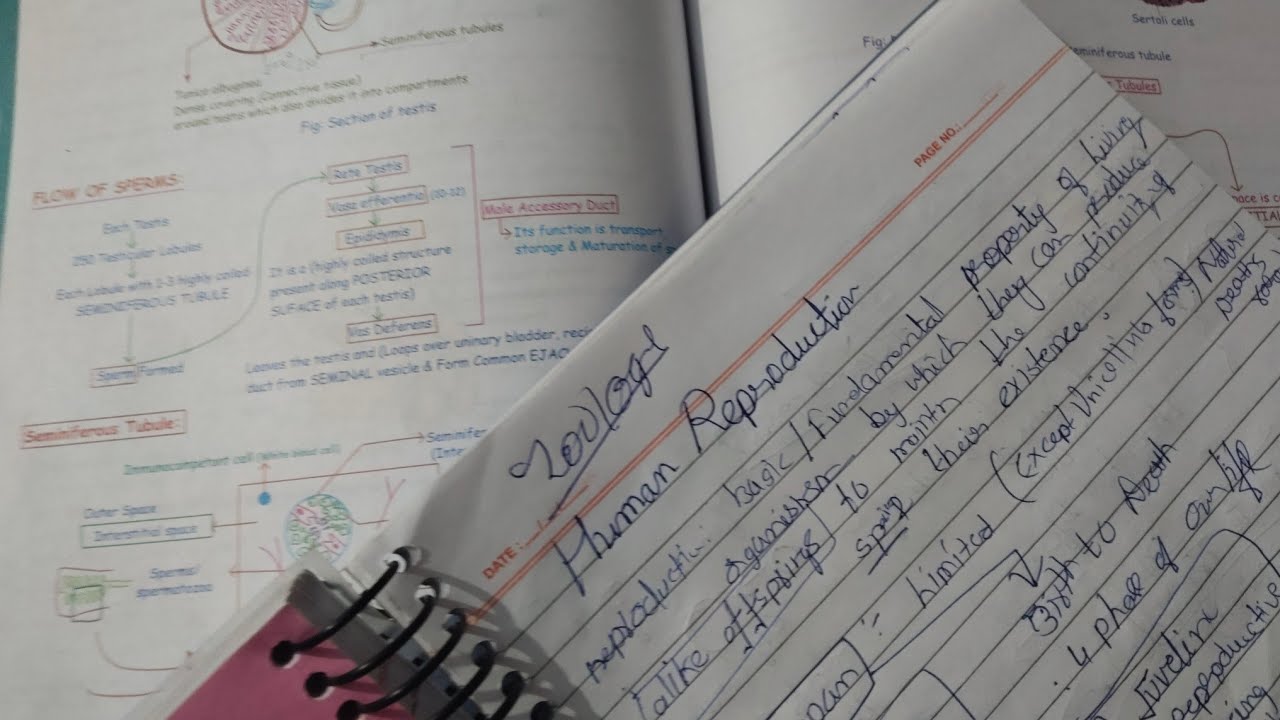 Seminiferous tubules
Tunica albuginea
Dense covering (Connective tissue)
around testis which also divides it into compartments
Fig: Section of testis
FLOW OF SPERMS:
Each Testis
250 Testicular Lobules
Each Lobule with 1-3 highly coiled
SEMINIFEROUS TUBULE
Sperm Formed
Rete Testis
Vasa efferentia (10-12)
Epididymis
It is a (highly coiled structure
present along POSTERIOR
SUFACE of each testis)
Vas Deferens
Leaves the testis and (Loops over urinary bladder,
duct from SEMINAL vesicle & Form Common
Male Accessory Duct
Its function is transport
storage & Maturation of
Seminiferous Tubule:
Immunocompetent cell (White blood cell)
Outer Space
Interstitial space
Sperms/
spermatozoa
Sertoli cells
Fig:
seminiferous tubule
Tubules
PAGE NO.:
DATE:
Zoology
Human Reproduction
reproduction: basic/fundamental property of living
organismsn by which they can produce
(alike offsprings) to maintn the continuity of
spring their existence.
: Limited (Except Unicell
Birth to Death
4 phase of own life
Juvelin
reproductive